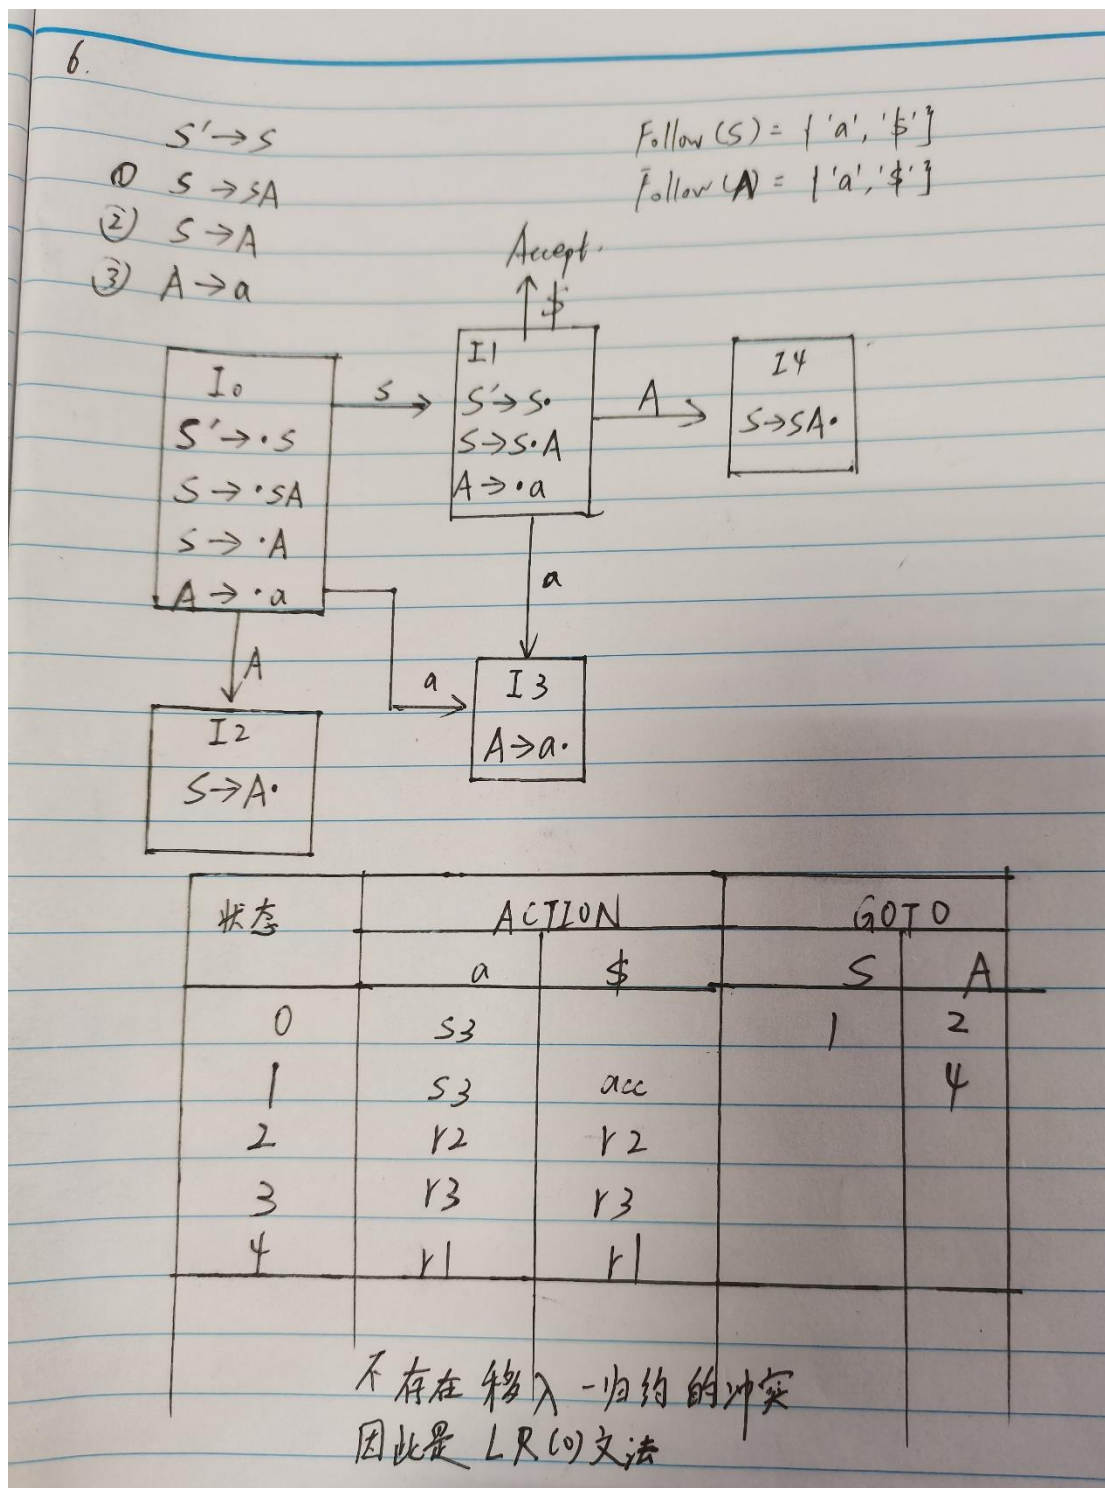 6.
S'→S
① S→SA
② S→A
③ A→a
Follow(S) = {'a','$'}
Follow(A) = {'a','$'}
Accept.
$
I0
S'→·S
S→·SA
S→·A
A→·a
S
I1
S'→S·
S→S·A
A→·a
A
I4
S→SA·
a
A
a
I3
A→a·
I2
S→A·
状态 ACTION GOTO
a $ S A
0 s3 1 2
1 s3 acc 4
2 r2 r2
3 r3 r3
4 r1 r1
不存在移入-归约的冲突
因此是LR(0)文法